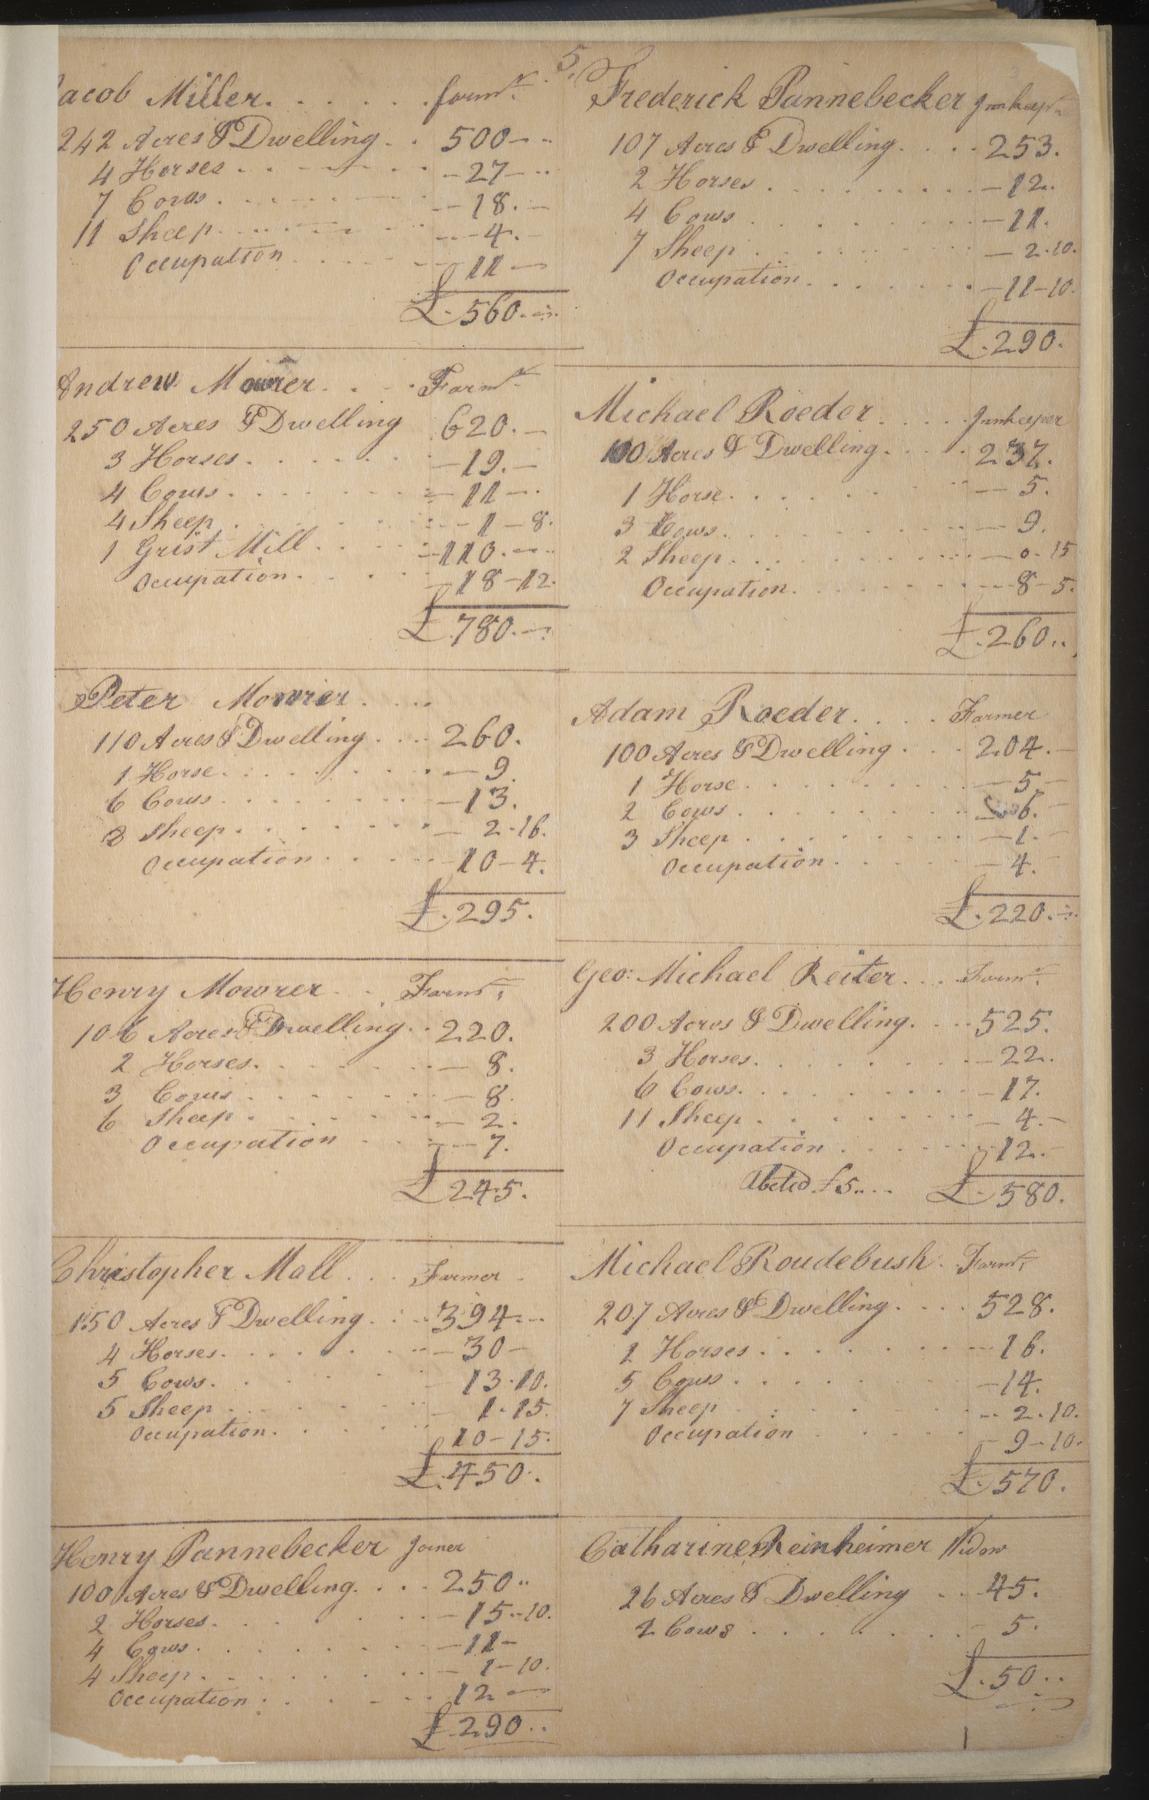 5.
acob Miller. . . . . . . farmr.
242 Acres & Dwelling. . . 500-..
4 Horses . . . . . -27-..
7 Cows. . . . . . --18.-
11 Sheep. . . . . . --4.-
Occupation . . . . --11-
£.560.-..
Andrew Mowrer. . . . Farmr.
250 Acres & Dwelling 620.-
3 Horses. . . . . . -19.-
4 Cows. . . . . . . -11-.
4 Sheep. . . . . . . -1-8.
1 Grist Mill . . . . -110.-..
Occupation. . . . . -18-12.
£.780.-..
Peter Mowrer . . . .
110 Acres & Dwelling . . . 260.
1 Horse. . . . . . . -9.
6 Cows . . . . . . . -13.
8 Sheep. . . . . . . - 2-16.
Occupation . . . . -10-4.
£.295.
Henry Mowrer . . Farmr.
106 Acres & Dwelling. . 220.
2 Horses. . . . . . - 8.
3 Cows . . . . . . . - 8.
6 Sheep . . . . . . . - 2.
Occupation . . . . - 7.
£245.
Christopher Mall . . . Farmer.
150 Acres & Dwelling. . . 394-..
4 Horses. . . . . . . -30-
5 Cows. . . . . . . 13-10.
5 Sheep . . . . . . . 1-15.
Occupation. . . . . 10-15.
£.450.
Henry Pannebecker Joiner
100 Acres & Dwelling. . . . 250..
2 Horses. . . . . . . -15-10.
4 Cows. . . . . . . -11-
4 Sheep. . . . . . . - 1-10.
Occupation. . . . . - 12-
£290..
Frederick Pannebecker Innkepr
107 Acres & Dwelling. . . . 253.
2 Horses. . . . . . . -12.
4 Cows. . . . . . . -11.
7 Sheep . . . . . . . - 2.10.
Occupation. . . . . . -11-10.
£.290.
Michael Roeder. . . . . Innkeeper
100 Acres & Dwelling. . . . 237.
1 Horse. . . . . . . - 5.
3 Cows. . . . . . . - 9.
2 Sheep. . . . . . . - 0.15
Occupation. . . . . . - 8-5.
£.260..
Adam Roeder. . . . . Farmer
100 Acres & Dwelling . . . 204.-
1 Horse. . . . . . . - 5-
2 Cows . . . . . . . 6.-
3 Sheep . . . . . . . -1.-
Occupation. . . . . - 4.-
£.220.-..
Geo: Michael Reiter. . . Farmr.
200 Acres & Dwelling. . . 525.
3 Horses. . . . . . . -22.
6 Cows. . . . . . . -17.
11 Sheep. . . . . . . - 4.-
Occupation . . . . . 12.-
Abated £5.... £.580.
Michael Roudebush. Farmr.
207 Acres & Dwelling. . . . 528.
2 Horses. . . . . . . -16.
5 Cows . . . . . . . -14.
7 Sheep . . . . . . . - 2.10.
Occupation . . . . . - 9-10.
£.570.
Catharine Reinheimer Widow
26 Acres & Dwelling . . 45.
2 Cows . . . . . . . - 5.
£.50..